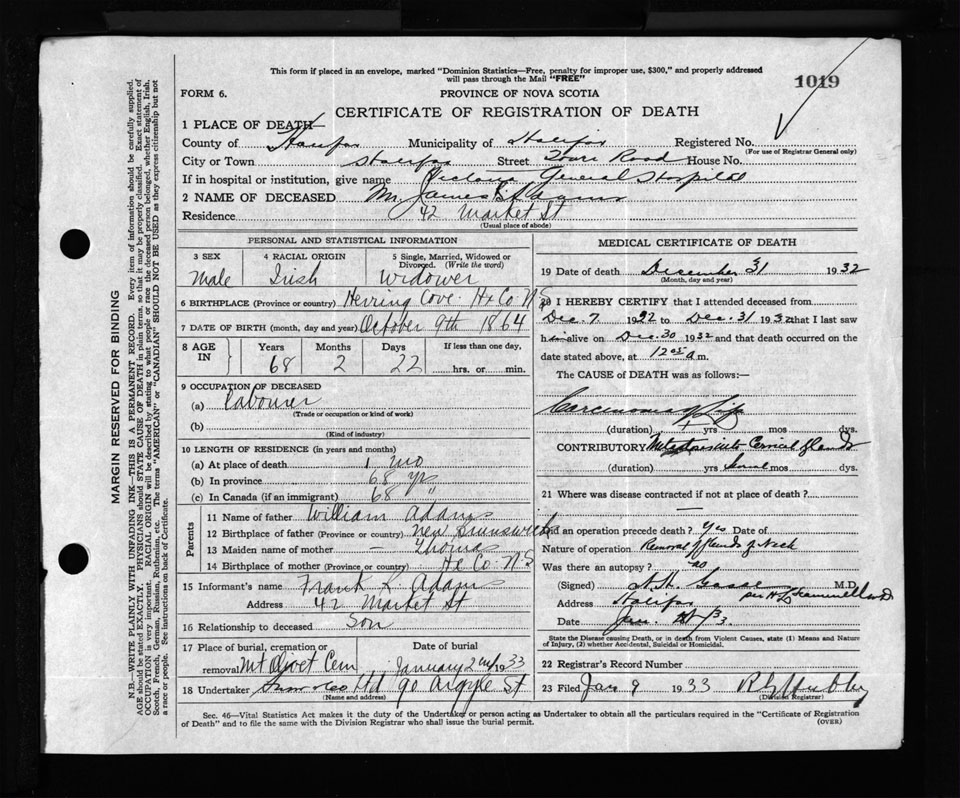 This form if placed in an envelope, marked "Dominion Statistics—Free, penalty for improper use, $300," and properly addressed
will pass through the Mail "FREE"
1019
FORM 6.
PROVINCE OF NOVA SCOTIA
CERTIFICATE OF REGISTRATION OF DEATH
1 PLACE OF DEATH—
County of Halifax Municipality of Halifax Registered No.
(For use of Registrar General only)
City or Town Halifax Street Tower Road House No.
If in hospital or institution, give name Victoria General Hospital
2 NAME OF DECEASED Mr James Adams
Residence 42 Market St
(Usual place of abode)
PERSONAL AND STATISTICAL INFORMATION
3 SEX 4 RACIAL ORIGIN 5 Single, Married, Widowed or
Divorced. (Write the word)
Male Irish Widower
6 BIRTHPLACE (Province or country) Herring Cove Hx Co N S
7 DATE OF BIRTH (month, day and year) October 9th 1864
8 AGE IN Years Months Days If less than one day,
68 2 22 hrs. or min.
9 OCCUPATION OF DECEASED
(a) Labourer
(Trade or occupation or kind of work)
(b)
(Kind of industry)
10 LENGTH OF RESIDENCE (in years and months)
(a) At place of death 1 mo
(b) In province 68 yrs
(c) In Canada (if an immigrant) 68 "
Parents
11 Name of father William Adams
12 Birthplace of father (Province or country) New Brunswick
13 Maiden name of mother — Thomas
14 Birthplace of mother (Province or country) Hx Co N S
15 Informant's name Frank L. Adams
Address 42 Market St
16 Relationship to deceased Son
17 Place of burial, cremation or Date of burial
removal Mt Olivet Cem January 2nd 1933
18 Undertaker Snow & Co Ltd 90 Argyle St
(Name and address)
MEDICAL CERTIFICATE OF DEATH
19 Date of death December 31 1932
(Month, day and year)
20 I HEREBY CERTIFY that I attended deceased from
Dec. 7 1922 to Dec. 31 1932 that I last saw
him alive on Dec. 30 1932 and that death occurred on the
date stated above, at 12 05 a m.
The CAUSE OF DEATH was as follows:—
Carcinoma of Lip
(duration) 1 yrs mos dys.
CONTRIBUTORY Metastasis into Cervical glands
(duration) yrs Several mos dys.
21 Where was disease contracted if not at place of death? —
Did an operation precede death? Yes Date of
Nature of operation Removal of glands of Neck
Was there an autopsy? no
(Signed) M.D.
Address Halifax
Date Jan.
State the Disease causing Death, or in death from Violent Causes, state (1) Means and Nature
of Injury, (2) whether Accidental, Suicidal or Homicidal.
22 Registrar's Record Number
23 Filed Jan 9 1933
(Division Registrar)
Sec. 46—Vital Statistics Act makes it the duty of the Undertaker or person acting as Undertaker to obtain all the particulars required in the "Certificate of Registration
of Death" and to file the same with the Division Registrar who shall issue the burial permit.
(OVER)
MARGIN RESERVED FOR BINDING
N.B.—WRITE PLAINLY WITH UNFADING INK—THIS IS A PERMANENT RECORD. Every item of information should be carefully supplied.
AGE should be stated EXACTLY. PHYSICIANS should STATE CAUSE OF DEATH in plain terms, so that it may be properly classified. Exact statement of
OCCUPATION is very important. RACIAL ORIGIN will be described by stating to what people or race the deceased person belonged, whether English, Irish,
Scotch, French, German, Russian, Ruthenian, etc. The terms "AMERICAN" or "CANADIAN" SHOULD NOT BE USED as they express citizenship but not
a race or people. See instructions on back of Certificate.